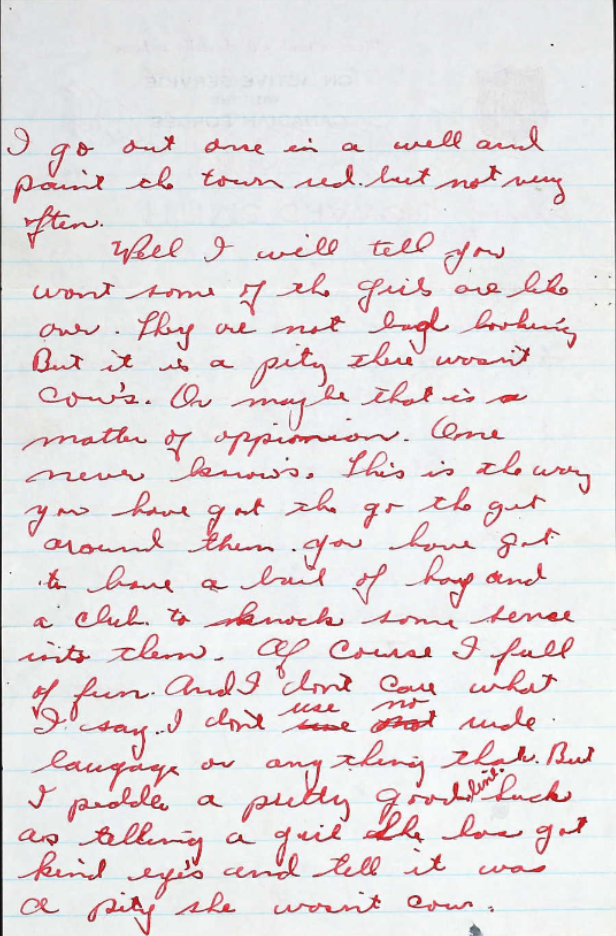 ON ACTIVE SERVICE
WITH THE
CANADIAN FORCES
I go out one in a well and
paint the town red. but not very
often.
Well I will tell you
wont some of the girls are like
over. They are not bad looking
But it is a pity there wasn't
Cow's. Or maybe that is a
matter of oppionion. One
never know's. This is the way
you have got the go the get
around them. you have got
to have a bail of hay and
a club. to knock some sense
into them. Of course I full
of fun. And I don't care what
I say. I don't use no rude
laugage or any thing that. But
I peddle a pretty good line. Such
as telling a girl She has got
kind eye's and tell it was
a pity she wasn't cow.